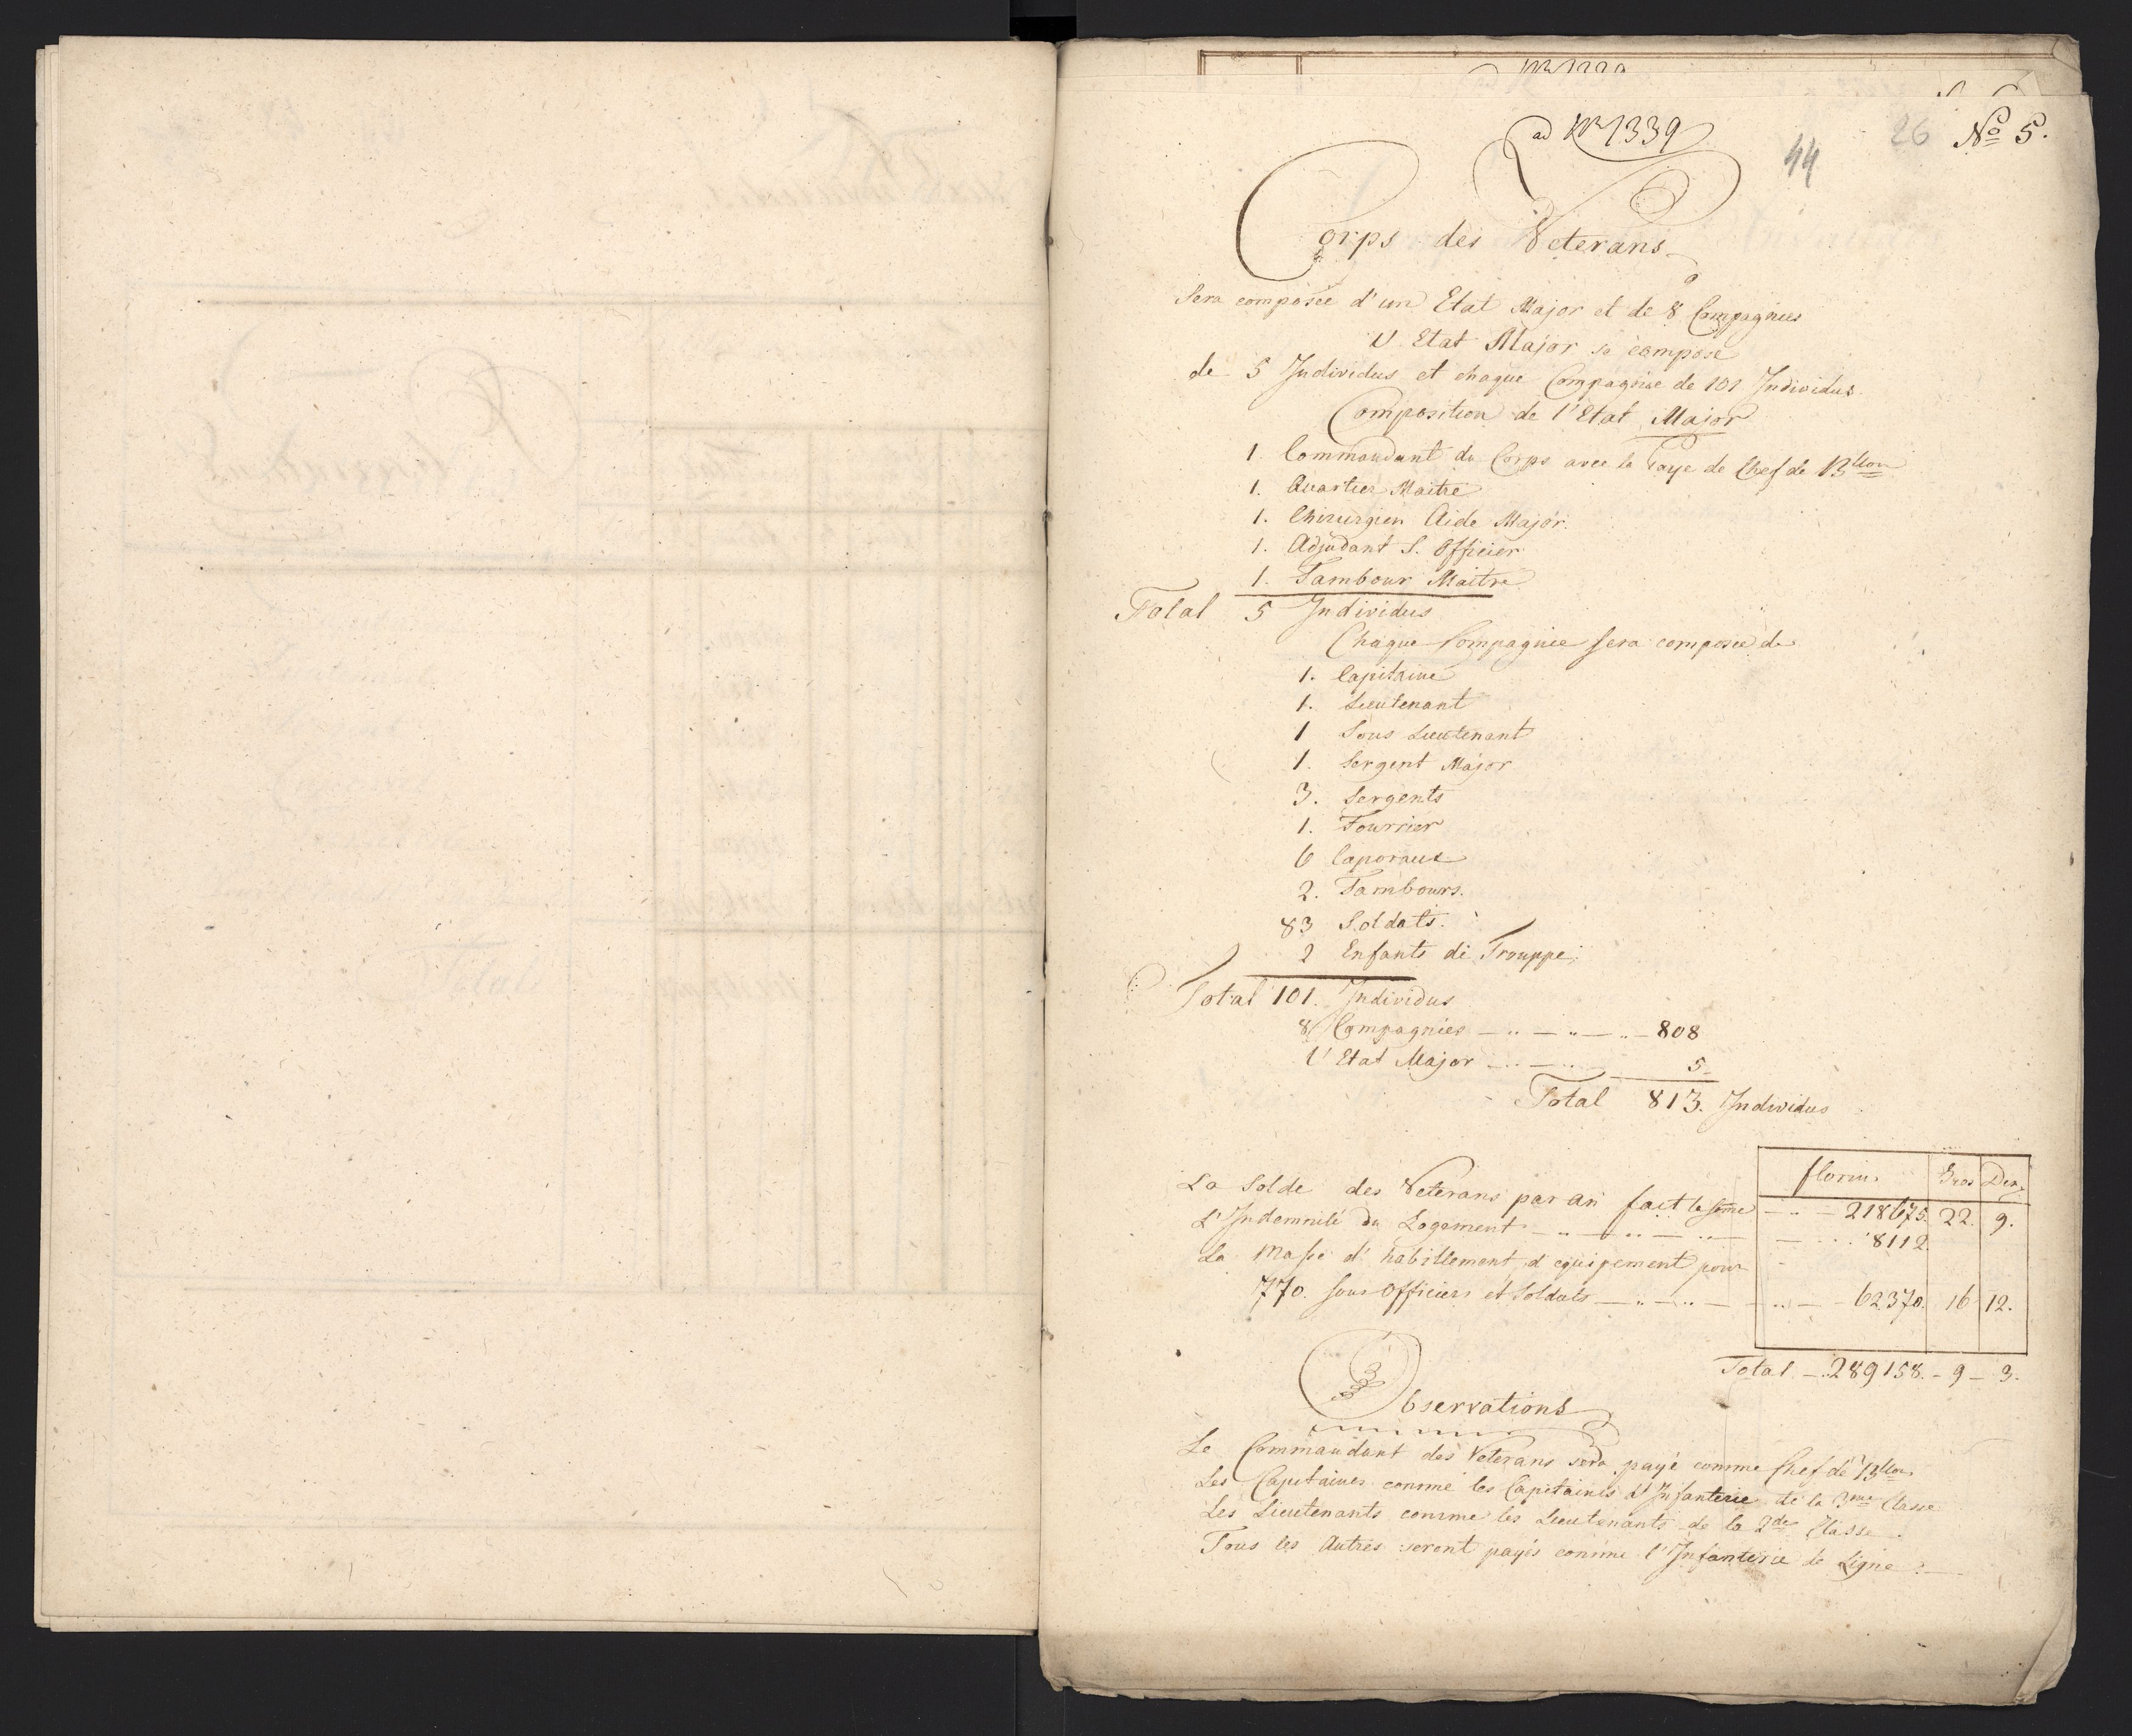 ad Nr 1339
44 26 No 5.
Corps des Veterans
Sera composée d'un Etat Major et de 8 Compagnies
L'Etat Major se compose
de 5 Individus et chaque Compagnie de 101 Individus.
Composition de l'Etat Major
1. Commandant du Corps avec la Paye de Chef de Btlon
1. Quartier Maitre
1. Chirurgien Aide Major.
1. Adjudant S. Officier
1. Tambour Maitre
Total 5 Individus
Chaque Compagnie sera composée de
1. Capitaine
1. Lieutenant
1 Sous Lieutenant
1. Sergent Major
3. Sergents
1. Fourrier
6 Caporaux
2. Tambours.
83 Soldats.
2 Enfants de Trouppe;
Total 101. Individus
8 Compagnies 808
L'Etat Major 5
Total 813. Individus
florins Gros Den.
La Solde des Veterans par an fait la some 218675. 22. 9.
L'Indemnité du Logement 8112
La Masse d'habillement d'equipement pour
770. sous officiers et Soldats 62370. 16 12.
Total 289158. - 9 - 3.
Observations
Le Commandant des Veterans sera payé comme Chef de Btlon.
Les Capitaines comme les Capitaines d'Infanterie de la 3me Classe
Les Lieutenants comme les Lieutenants de la 2de Classe.
Tous les Autres seront payés comme l'Infanterie de Ligne.